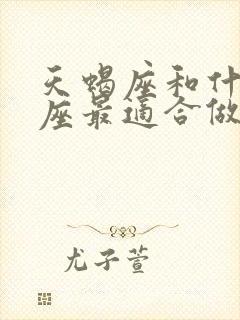 天蝎座和什
座最适合做
尤子萱